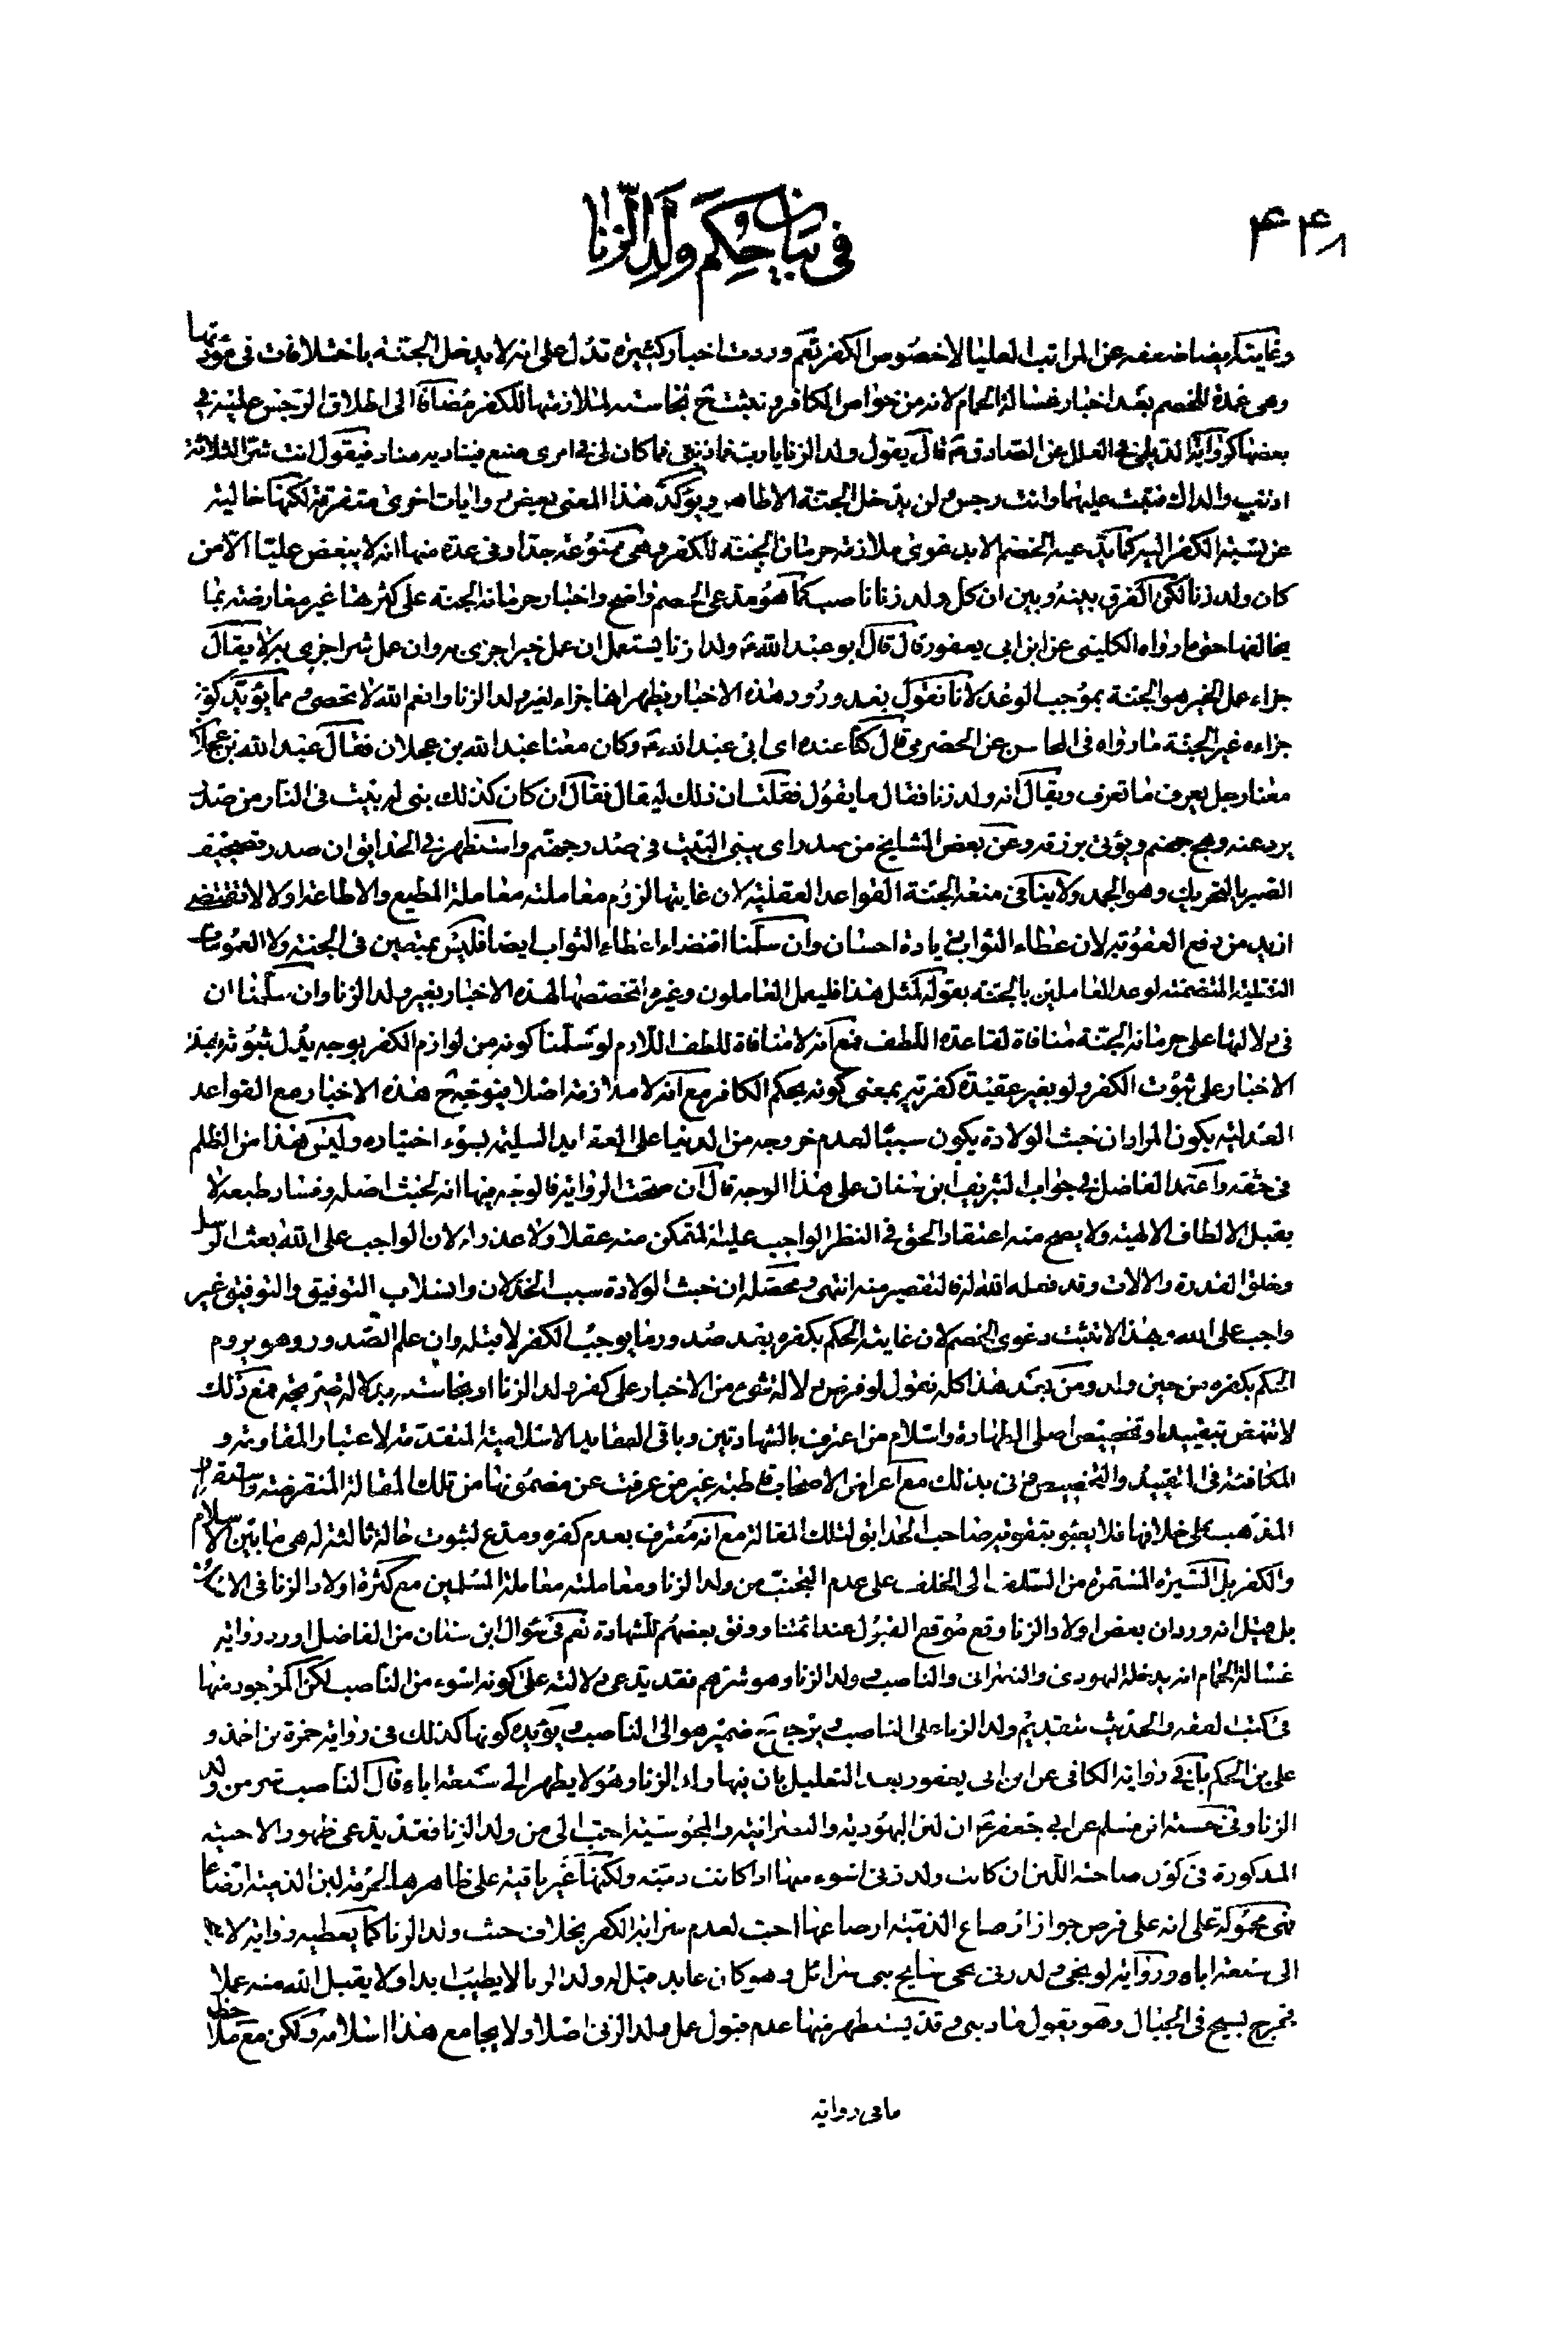 ۴۴۸
في بيان حكم ولد الزنا
وغايتك ايضا ضعفه عن المراتب العليا لا خصوص الكفر نعم وردت اخبار كثيرة تدل على انه لا يدخل الجنة باختلافات في مؤدتها
وهي عمدة للخصم بعد اخبار غسالة الحمام لانه من خواص الكافر وتثبت ح نجاسته لملازمتها للكفر مضافا الى اطلاق الرجس عليه في
بعضها كرواية الديلمي في العلل عن الصادق ع قال يقول ولد الزنا يا رب فما ذنبي فما كان لي في امري صنع فيناديه مناد فيقول انت شر الثلاثة
اذنب والداك فتبت عليهما وانت رجس ولن يدخل الجنة الا طاهر ويؤكد هذا المعنى بعض روايات اخرى متفرقة لكنها خالية
عن نسبة الكفر اليه كما يدعيه الخصم الا بدعوى ملازمة حرمان الجنة للكفر وهي ممنوعة جدا وفي عدة منها انه لا يبغض عليا الا من
كان ولد زنا لكن الفرق بينه وبين ان كل ولد زنا ناصب كما هو مدعى الخصم واضح واخبار حرمانه الجنة على كثرتها غير معارضة بما
يخالفها حتى ما رواه الكليني عن ابن ابي يعفور قال قال ابو عبد الله ع ولد الزنا يستعمل ان عمل خيرا جزي به وان عمل شرا جزي به لا يقال
جزاء عمل الخير هو الجنة بموجب الوعد لانا نقول بعد ورود هذه الاخبار يظهر انها جزاء لغير ولد الزنا وانعم الله لا تحصى ومما يؤيد كون
جزاءه غير الجنة ما رواه في المحاسن عن الحضرمي قال كنا عنده اي ابي عبد الله ع وكان معنا عبد الله بن عجلان فقال عبد الله بن عجلان
معنا رجل يعرف ما نعرف ويقال انه ولد زنا فقال ما يقول فقلت ان ذلك ليقال فقال ان كان كذلك بني له بيت في النار من صدر
يرد عنه وهج جهنم ويؤتى برزقه وعن بعض المشايخ من صدر اي يبنى البيت في صدر جهنم واستظهر في الحدائق ان صدر تصحيف
الصبر بالتحريك وهو الجمد ولا ينافي منعه الجنة القواعد العقلية لان غايتها لزوم معاملته معاملة المطيع والاطاعة اولا لا تقتضي
ازيد من رفع العقوبة لان عطاء الثواب زيادة احسان وان سلمنا اقتضاء اعطاء الثواب ايضا فليس بمتعين في الجنة ولا العمومات
النقلية المتضمنة لوعد العاملين بالجنة بقوله لمثل هذا فليعمل العاملون وغيره لتخصصها بهذه الاخبار بغير ولد الزنا وان سلمنا ان
في دلالتها على حرمانه الجنة منافاة لقاعدة اللطف مع انه لا منافاة للطف اللازم لو سلمنا كونه من لوازم الكفر بوجه يدل ثبوته بهذه
الاخبار على ثبوت الكفر ولو بغير عقيدة كفرية بمعنى كونه بحكم الكافر مع انه لا ملازمة اصلا فيتوجه ح هذه الاخبار مع القواعد
العدلية بكون المراد ان خبث الولادة يكون سببا لعدم خروجه من الدنيا على العقايد السليمة بسوء اختياره وليس هذا من الظلم
في حقه واعتمد الفاضل في جواب الشريف ابن سنان على هذا الوجه قال ان صحت الرواية فالوجه فيها انه لخبث اصله وفساد طبعه لا
يقبل الالطاف الالهية ولا يصح منه اعتقاد الحق في النظر الواجب عليه المتمكن منه عقلا ولا عذر له لان الواجب على الله بعث الرسل
وخلق القدرة والالات وقد فعله الله له فالتقصير منه انتهى ومحصله ان خبث الولادة سبب الخذلان وانسلاب التوفيق والتوفيق غير
واجب على الله وبهذا لا تثبت دعوى الخصم لان غايته الحكم بكفره بعد صدور ما يوجب الكفر لا قبله وان علم الصدور وهو يروم
الحكم بكفره من حين ولد ومن بعد هذا كله نقول لو فرض دلالة شيء من الاخبار على كفر ولد الزنا او نجاسته بدلالة صريحة فمع ذلك
لا تنهض بتقييد او تخصيص اصلي الطهارة واسلام من اعترف بالشهادتين وباقي العقايد الاسلامية المتقدمة لاعتبار المقاومة و
المكافئة في التقييد والتخصيص وانى بذلك مع اعراض الاصحاب قاطبة غير من عرفت عن مضمونها من تلك المقالة المنقرضة واستقرار
المذهب على خلافها فلا يعبؤ بتقوية صاحب الحدائق لتلك المقالة مع انه معترف بعدم كفره ومدع لثبوت حالة ثالثة له هي ما بين الاسلام
والكفر بل السيرة المستمرة من السلف الى الخلف على عدم التجنب من ولد الزنا ومعاملته معاملة المسلمين مع كثرة اولاد الزنا في
بل قيل انه ورد ان بعض اولاد الزنا وقع موقع القبول عند ائمتنا ووفق بعضهم للشهادة نعم في سؤال ابن سنان من الفاضل اورد رواية
غسالة الحمام انه يدخله اليهودي والنصراني والناصب وولد الزنا وهو شرهم فقد يدعى دلالته على كونه اسوء من الناصب لكن الموجود منها
في كتب الفقه والحديث بتقديم ولد الزنا على الناصب وترجيع ضمير هو الى الناصب ويؤيده كونها كذلك في رواية حمزة بن احمد و
علي بن الحكم بل في رواية الكافي عن ابن ابي يعفور بعد التعليل بان فيها ولد الزنا وهو لا يطهر الى سبعة اباء قال الناصب شر من ولد
الزنا وفي حسنة ابن مسلم عن ابي جعفر ع ان لبن اليهودية والنصرانية والمجوسية احب الي من ولد الزنا فقد يدعى ظهور الاحبية
المذكورة في كون صاحبة اللبن ان كانت ولد زنى اسوء منها اذا كانت ذمية ولكنها غير باقية على ظاهرها لحرمة لبن الذمية ارتضاعا
فهي محمولة على انه على فرض جواز ارضاع الذمية ارضاعها احب لعدم سراية الكفر بخلاف خبث ولد الزنا كما يعطيه رواية لا
الى سبعة اباء ورواية لو نجى ولد زنى نجى سايح بني اسرائيل وهو كان عابد فقيل له ولد الزنا لا يطيب ابدا ولا يقبل الله منه عملا
فخرج يسيح في الجبال وهو يقول ما ذنبي وقد يستظهر منها عدم قبول عمل ولد الزنى اصلا ولا يجامع هذا اسلامه ولكن مع ملاحظة
ما في رواية